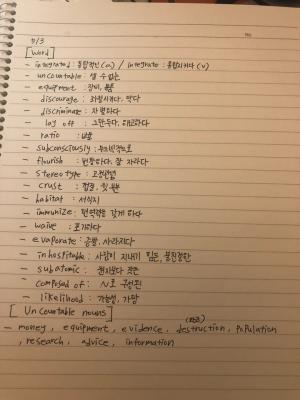 5/3
[Word]
- integrated : 통합적인(a) / integrate : 통합시키다(v)
- uncountable : 셀 수 없는
- equipment : 장비, 용품
- discourage : 좌절시키다, 막다
- discriminate : 차별하다
- lay off : 그만두다, 해고하다
- ratio : 비율
- subconsciously : 무의식적으로
- flourish : 번창하다, 잘 자라다
- stereotype : 고정관념
- crust : 껍질,
- habitat : 서식지
- immunize : 면역력을 갖게 하다
- waive : 포기하다
- evaporate : 증발, 사라지다
- inhospitable : 사람이 지내기 힘든, 불친절한
- subatomic : 원자보다 작은
- composed of : N로 구성된
- likelihood : 가능성, 가망
[Uncountable nouns]
- money, equipment, evidence, destruction (파괴), population
, research, advice, information